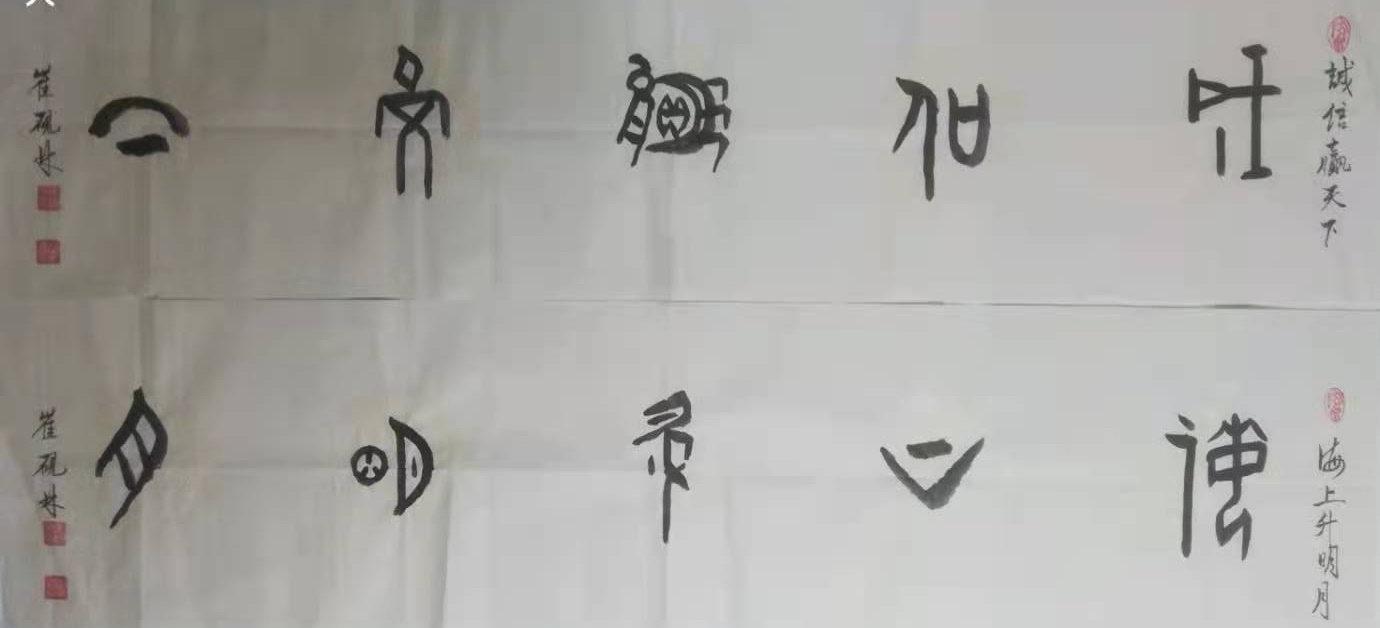 誠信贏天下
誠信贏天下
崔砚林
海上升明月
海上升明月
崔砚林